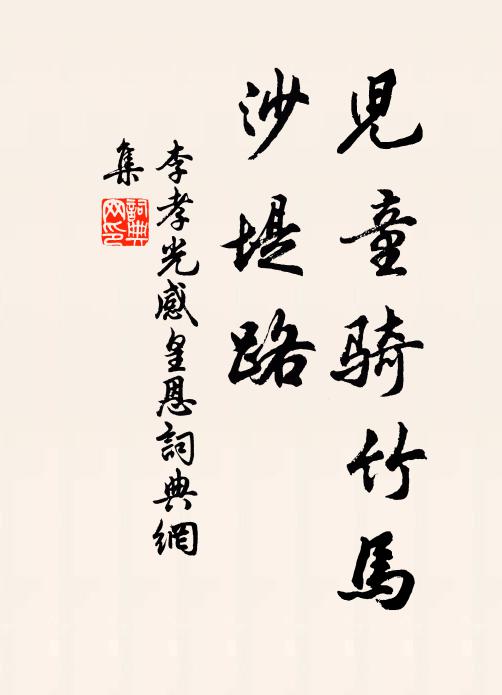 兒童騎竹馬
沙堤路
李孝光感皇恩詞典網
集
詞典
网印